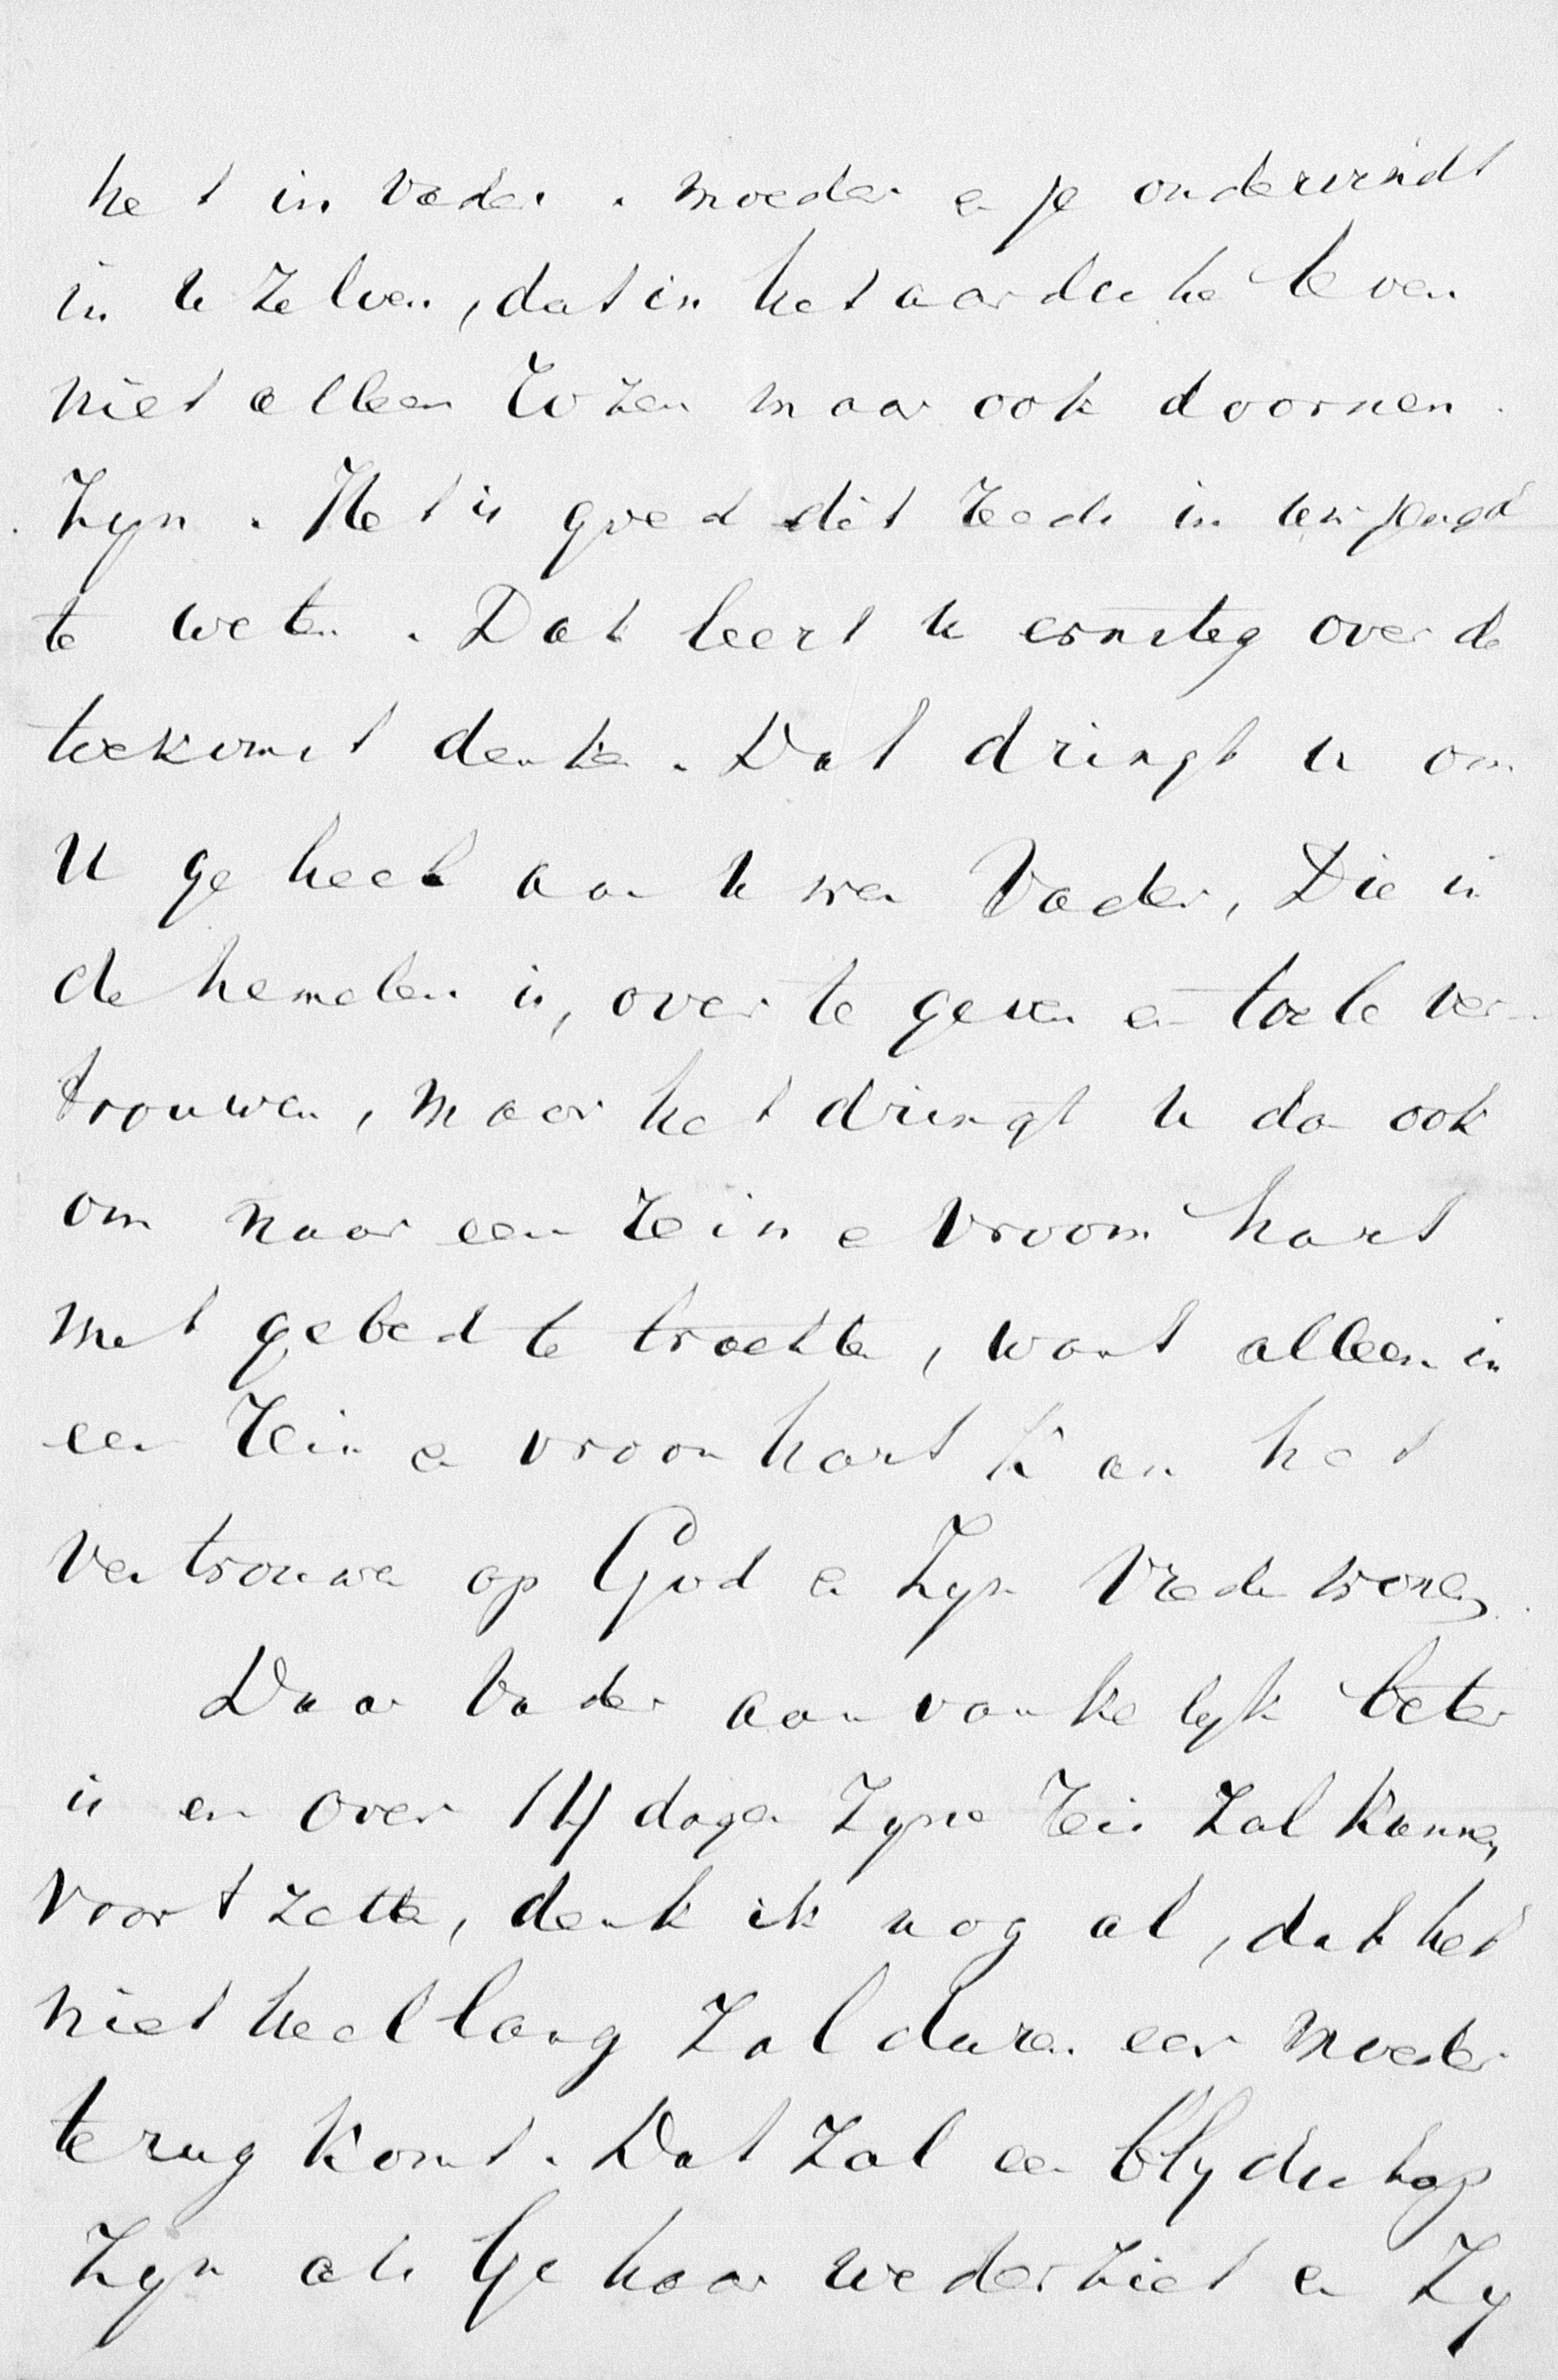 het in Vader . Moeder en je ondervindt
in U zelven, dat in het aardsche leven
niet alleen rozen maar ook doornen
zyn. Het is goed dit reeds in uw jeugd
te weten. Dat leert U ernstig over de
toekomst denken. Dat dringt U om
U geheel aan Uwen Vader, Die in
de hemelen is, over te geven en toe te ver-
trouwen, maar het dringt U dan ook
om naar een rein en vroom hart
met gebed te trachten, want alleen in
een rein en vroom hart kan het
vertrouwen op God en Zyn vrede wonen.
Daar Vader aanvankelyk beter
is en over 14 dagen zyne reis zal kunnen
voortzetten, denk ik nog al, dat het
niet heel lang zal duren eer Moeder
terug komt. Dat zal een blydschap
zyn als Ge haar wederziet en zy